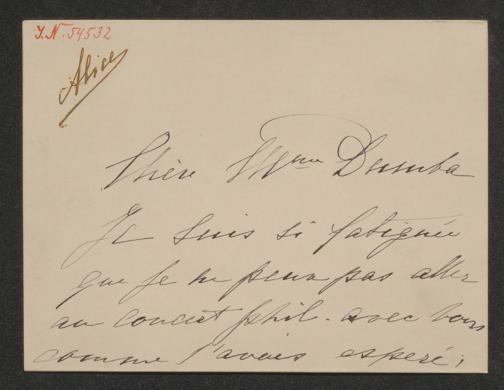 J.N. 54532
Alice
Chère Mme Dumba
Je suis si fatiguée
que je ne peux pas aller
au concert phil. avec vous
comme j'avais esperé,